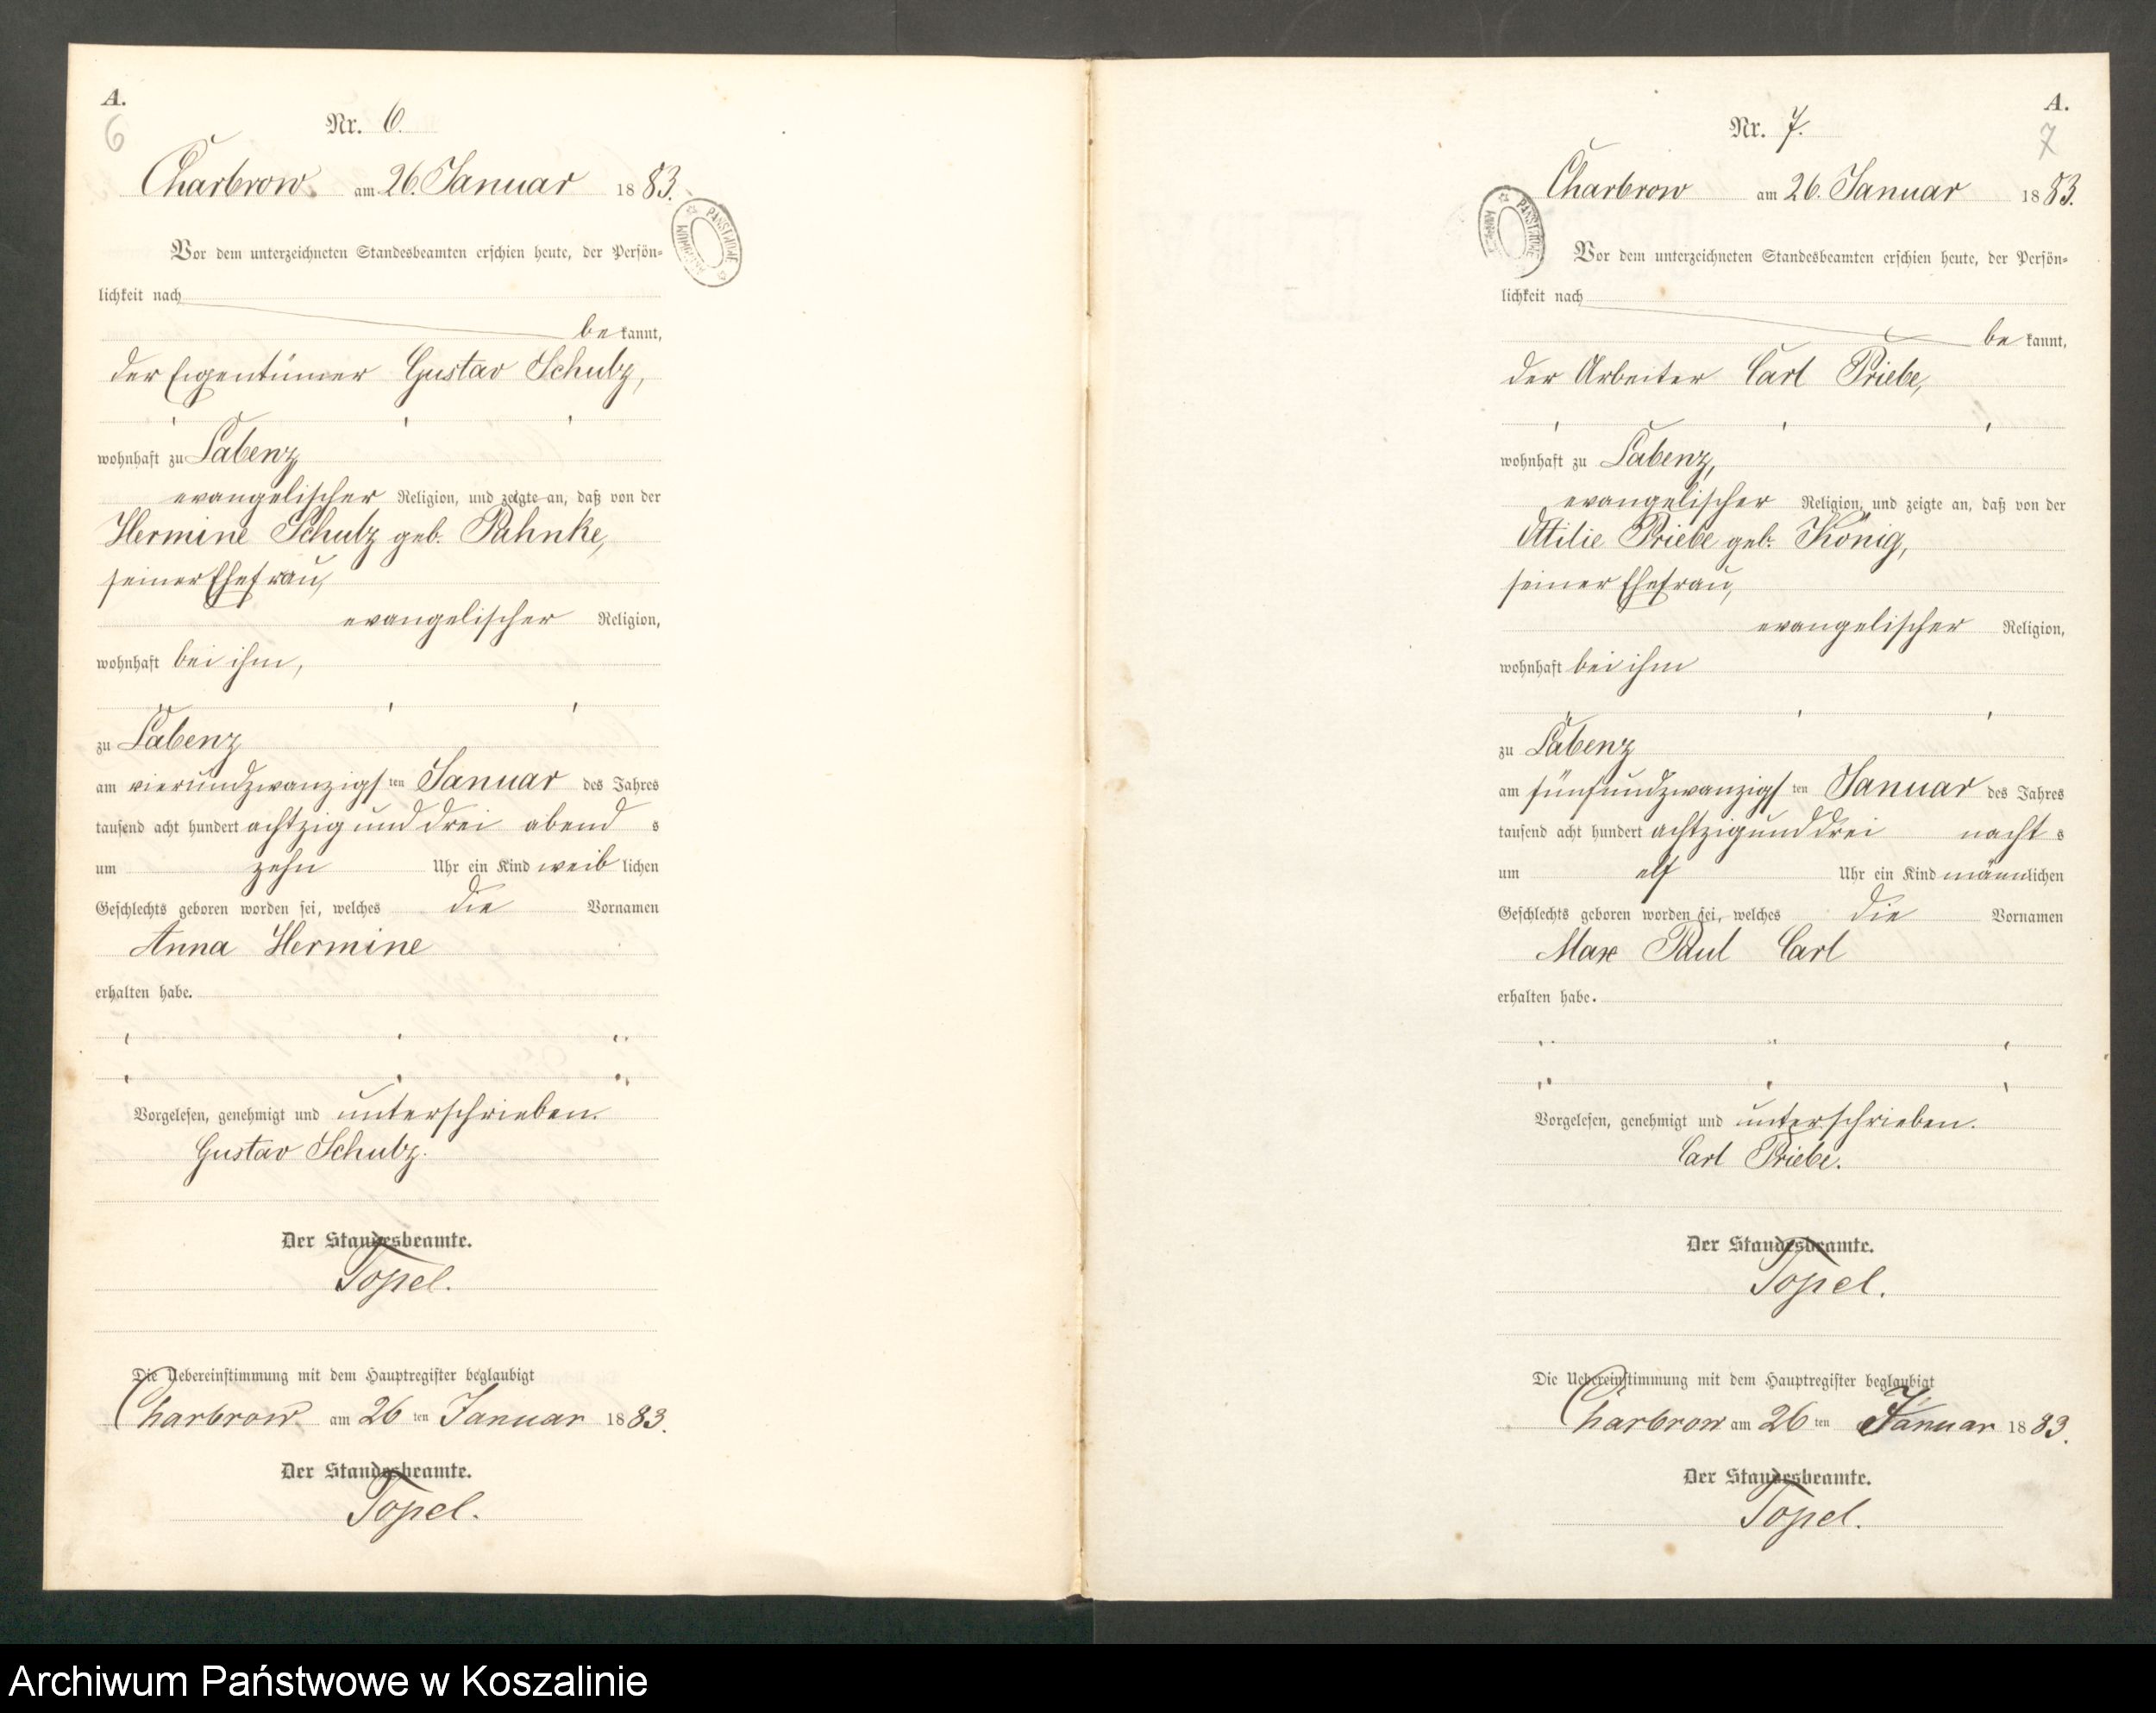 A.
6
Nr. 6.
Charbrow. am 26. Januar 1883.
Vor dem unterzeichneten Standesbeamten erschien heute, der Persön-
lichkeit nach
bekannt,
der Eigentümer Gustav Schulz,
wohnhaft zu Labenz
evangelischer Religion, und zeigte an, daß von der
Hermine Schulz geb. Pahnke,
seiner Ehefrau,
evangelischer Religion,
wohnhaft bei ihm,
zu Labenz
am vierundzwanzigsten Januar des Jahres
tausend acht hundert achtzig und drei abends
um zehn Uhr ein Kind weiblichen
Geschlechts geboren worden sei, welches die Vornamen
Anna Hermine
erhalten habe.
Vorgelesen, genehmigt und unterschrieben.
Gustav Schulz.
Der Standesbeamte.
Topel.
Die Uebereinstimmung mit dem Hauptregister beglaubigt
Charbrow am 26ten Januar 1883.
Der Standesbeamte.
Topel.
A.
7
Nr. 7.
Charbrow am 26. Januar 1883.
Vor dem unterzeichneten Standesbeamten erschien heute, der Persön-
lichkeit nach
bekannt,
der Arbeiter Carl Priebe,
wohnhaft zu Labenz,
evangelischer Religion, und zeigte an, daß von der
Ottilie Priebe geb. König,
seiner Ehefrau,
evangelischer Religion,
wohnhaft bei ihm
zu Labenz
am fünfundzwanzigsten Januar des Jahres
tausend acht hundert achtzig und drei nachts
um elf Uhr ein Kind männlichen
Geschlechts geboren worden sei, welches die Vornamen
Max Paul Carl
erhalten habe.
Vorgelesen, genehmigt und unterschrieben.
Carl Priebe.
Der Standesbeamte.
Topel.
Die Uebereinstimmung mit dem Hauptregister beglaubigt
Charbrow am 26ten Januar 1883.
Der Standesbeamte.
Topel.
Archiwum Państwowe w Koszalinie